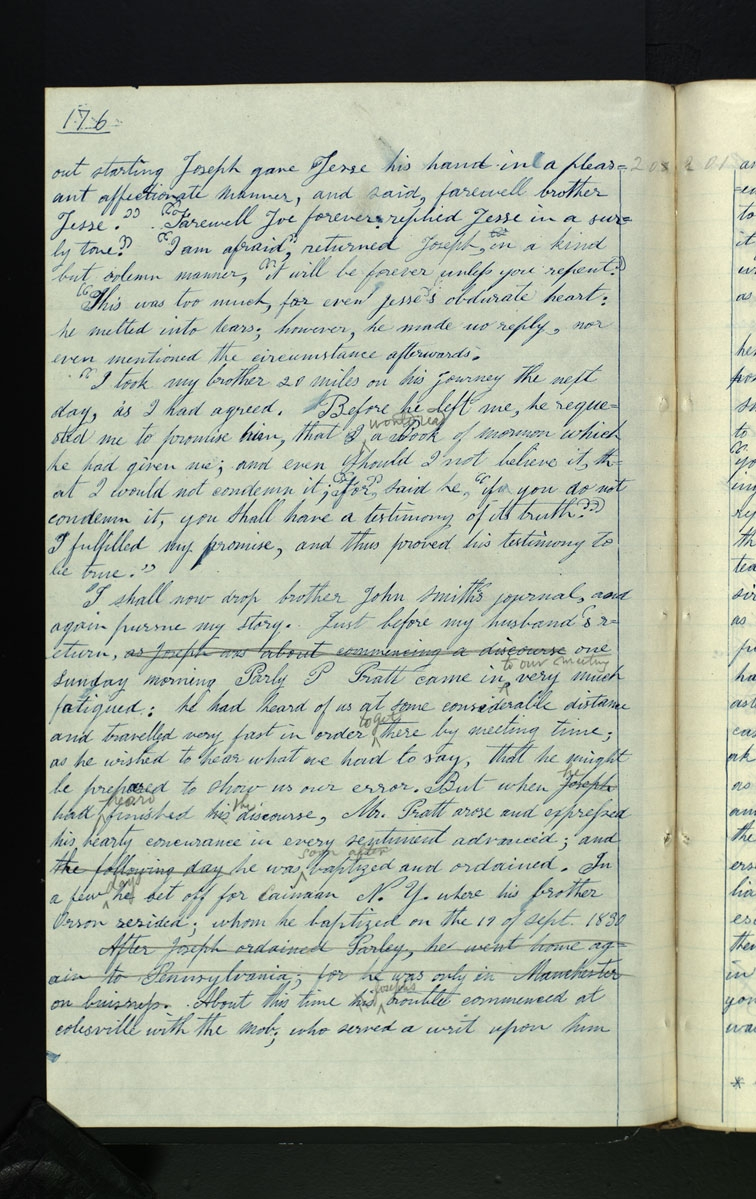 176
out starting Joseph gave Jesse his hand in a pleas=
ant affectionate manner, and said, farewell brother
Jesse." "Farewell Joe forever" replied Jesse in a sur=
ly tone." "I am afraid", returned Joseph, in a kind
but solemn manner, "it will be forever unless you repent."
"This was too much, for even jesse's obdurate heart:
he melted into tears; however, he made no reply, nor
even mentioned the circumstance afterwards.
"I took my brother 20 miles on his journey the next
day, as I had agreed. Before he left me, he reque=
sted me to promise him, that I would read a Book of mormon which
he had given me; and even should I not believe it, th=
at I would not condemn it; "for", said he, "if you do not
condemn it, you shall have a testimony of its truth.""
I fulfilled my promise, and thus proved his testimony to
be true."
I shall now drop brother John smith's journal, and
again pursue my story. Just before my husband's r=
eturn, as Joseph was about commencing a discourse one
sunday morning Parly P Pratt came in to our meeting very much
fatigued: he had heard of us at some considerable distance
and travelled very fast in order to get there by meeting time;
as he wished to hear what we had to say, that he might
be prepared to show us our error. But when Joseph he
had heard finished his the discourse, Mr. Pratt arose and expressed
his hearty concurance in every sentiment advanced; and
the following day he was soon after baptized and ordained. In
a few days he set off for Cainaan N. Y. where his brother
Orson resided; whom he baptized on the 19 of sept. 1830
After Joseph ordained Parley, he went home ag=
ain to Pennsylvania; for he was only in Manchester
on buisness. About this time his Josephs trouble commenced at
colesville with the mob; who served a writ upon him